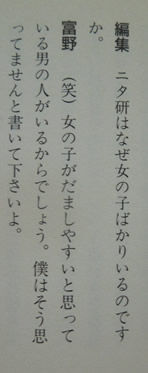 編集　ニタ研はなぜ女の子ばかりいるのです
か。
富野　（笑）女の子がだましやすいと思って
いる男の人がいるからでしょう。僕はそう思
ってませんと書いて下さいよ。